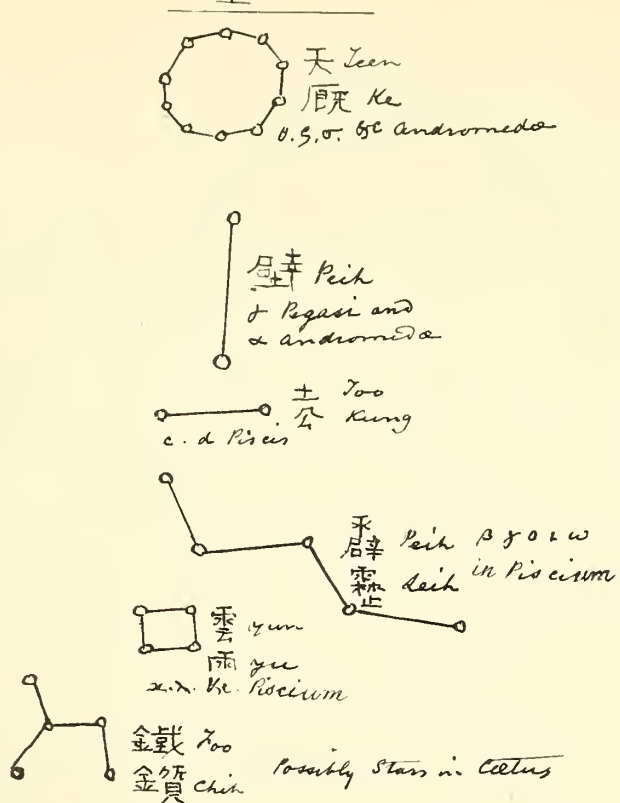 天 Teen
廐 Ke
θ. ϛ, σ. &c Andromedæ
壁 Peih
γ Pegasi and
α Andromedæ
土 Too
公 Kung
c. d Piscis
霹 Peih β γ θ ι ω
靂 Leih in Piscium
雲 Yun
雨 Yu
κ. λ. &c. Piscium
鐵 Foo
鑕 Chih Possibly Stars in Cetus